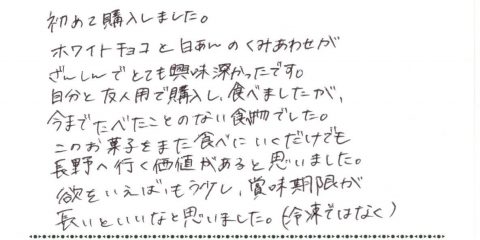 初めて購入しました。
ホワイトチョコと白あんのくみあわせが
ざんしんでとても興味深かったです。
自分と友人用で購入し、食べましたが、
今までたべたことのない食物でした。
このお菓子をまた食べにいくだけでも
長野へ行く価値があると思いました。
欲をいえば、もう少し、賞味期限が
長いといいなと思いました。(冷凍ではなく)